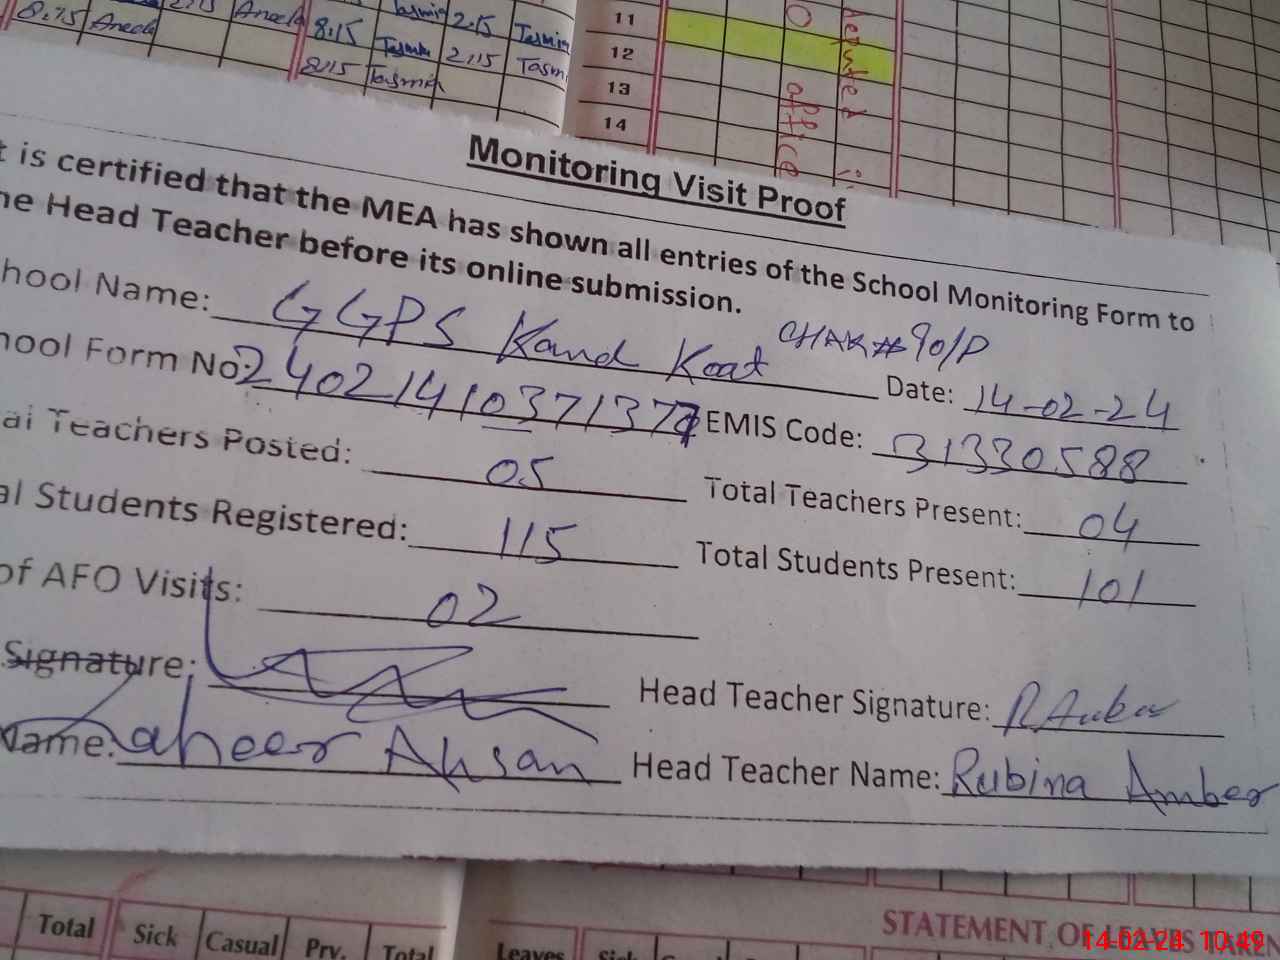 8.15 Aneela 2:15 Aneela 8:15 Tasmia 2:15 Tasmia
8:15 Tasmia 2:15 Tasmi
11
12
13
14
office
Monitoring Visit Proof
t is certified that the MEA has shown all entries of the School Monitoring Form to
he Head Teacher before its online submission.
hool Name: GGPS Kand Koat CHAK#90/P Date: 14-02-24
hool Form No: EMIS Code: 31330588
al Teachers Posted: 05 Total Teachers Present: 04
al Students Registered: 115 Total Students Present: 101
of AFO Visits: 02
Signature: Head Teacher Signature: R Amber
Name: Zaheer Ahsan Head Teacher Name: Rubina Amber
STATEMENT OF LEAVES TAKEN
Total Sick Casual Prv. Total Leaves Sick
14-02-24 10:49